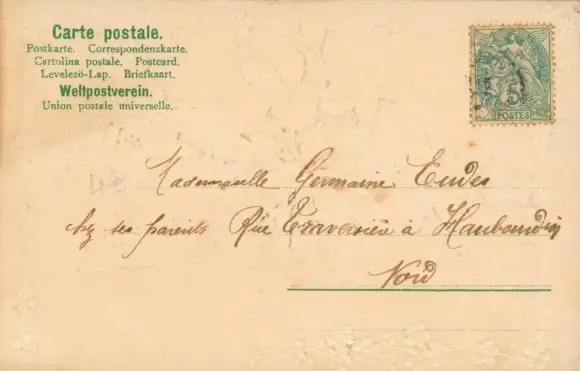 Carte postale.
Postkarte. Correspondenzkarte.
Cartolina postale. Postcard.
Levelező-Lap. Briefkaart.
Weltpostverein.
Union postale universelle.
5
POSTES
Mademoiselle Germaine Eudes
chez ses parents Rue Traversière à Haubourdin
Nord